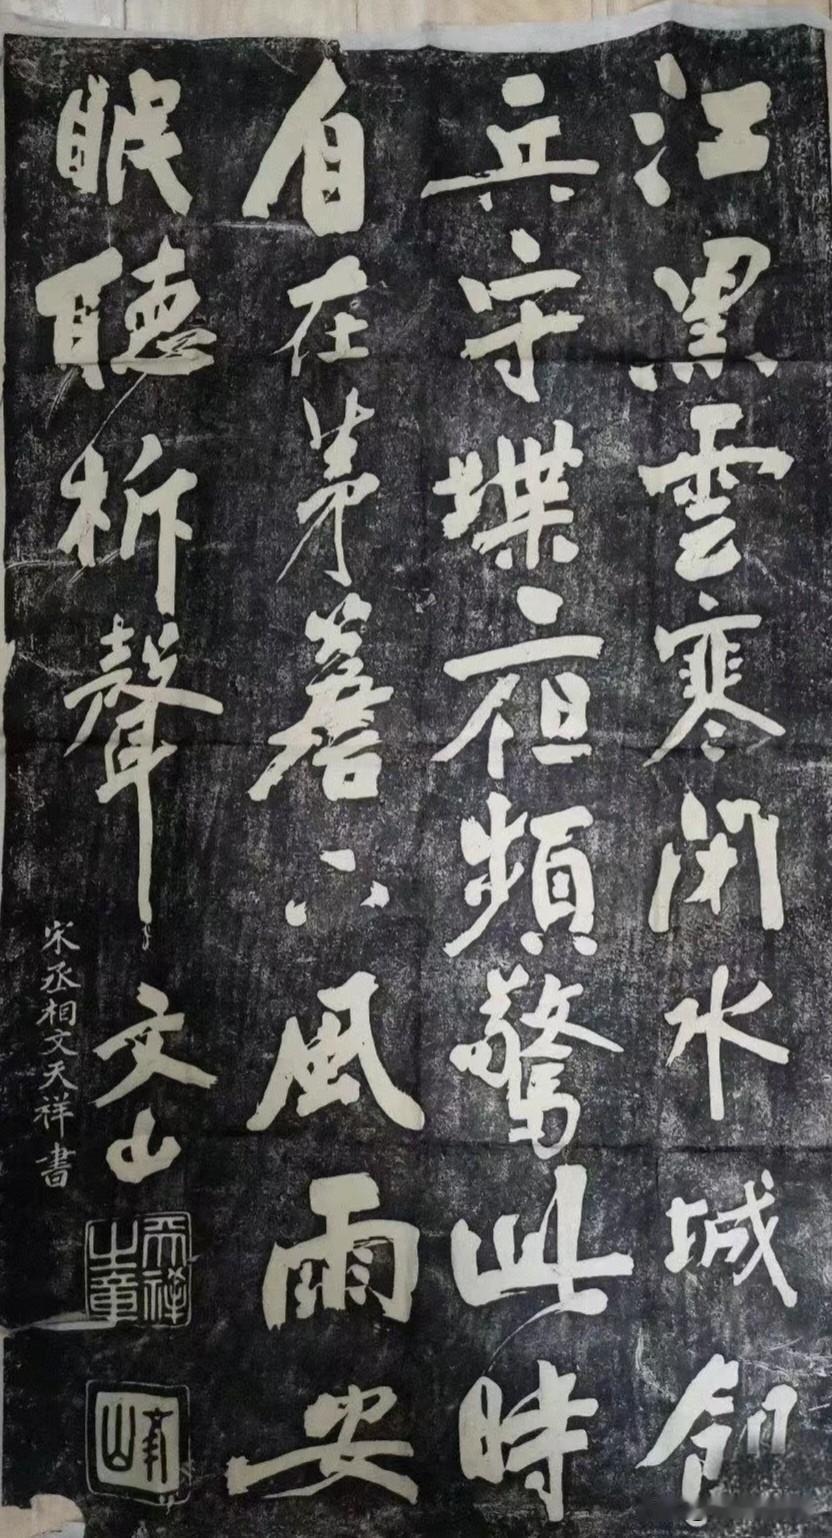 江黑雲寒閉水城飢
兵守堞夜頻驚此時
自在茅簷下風雨安
眠聽柝聲文山
宋丞相文天祥書
天祥之章
文山